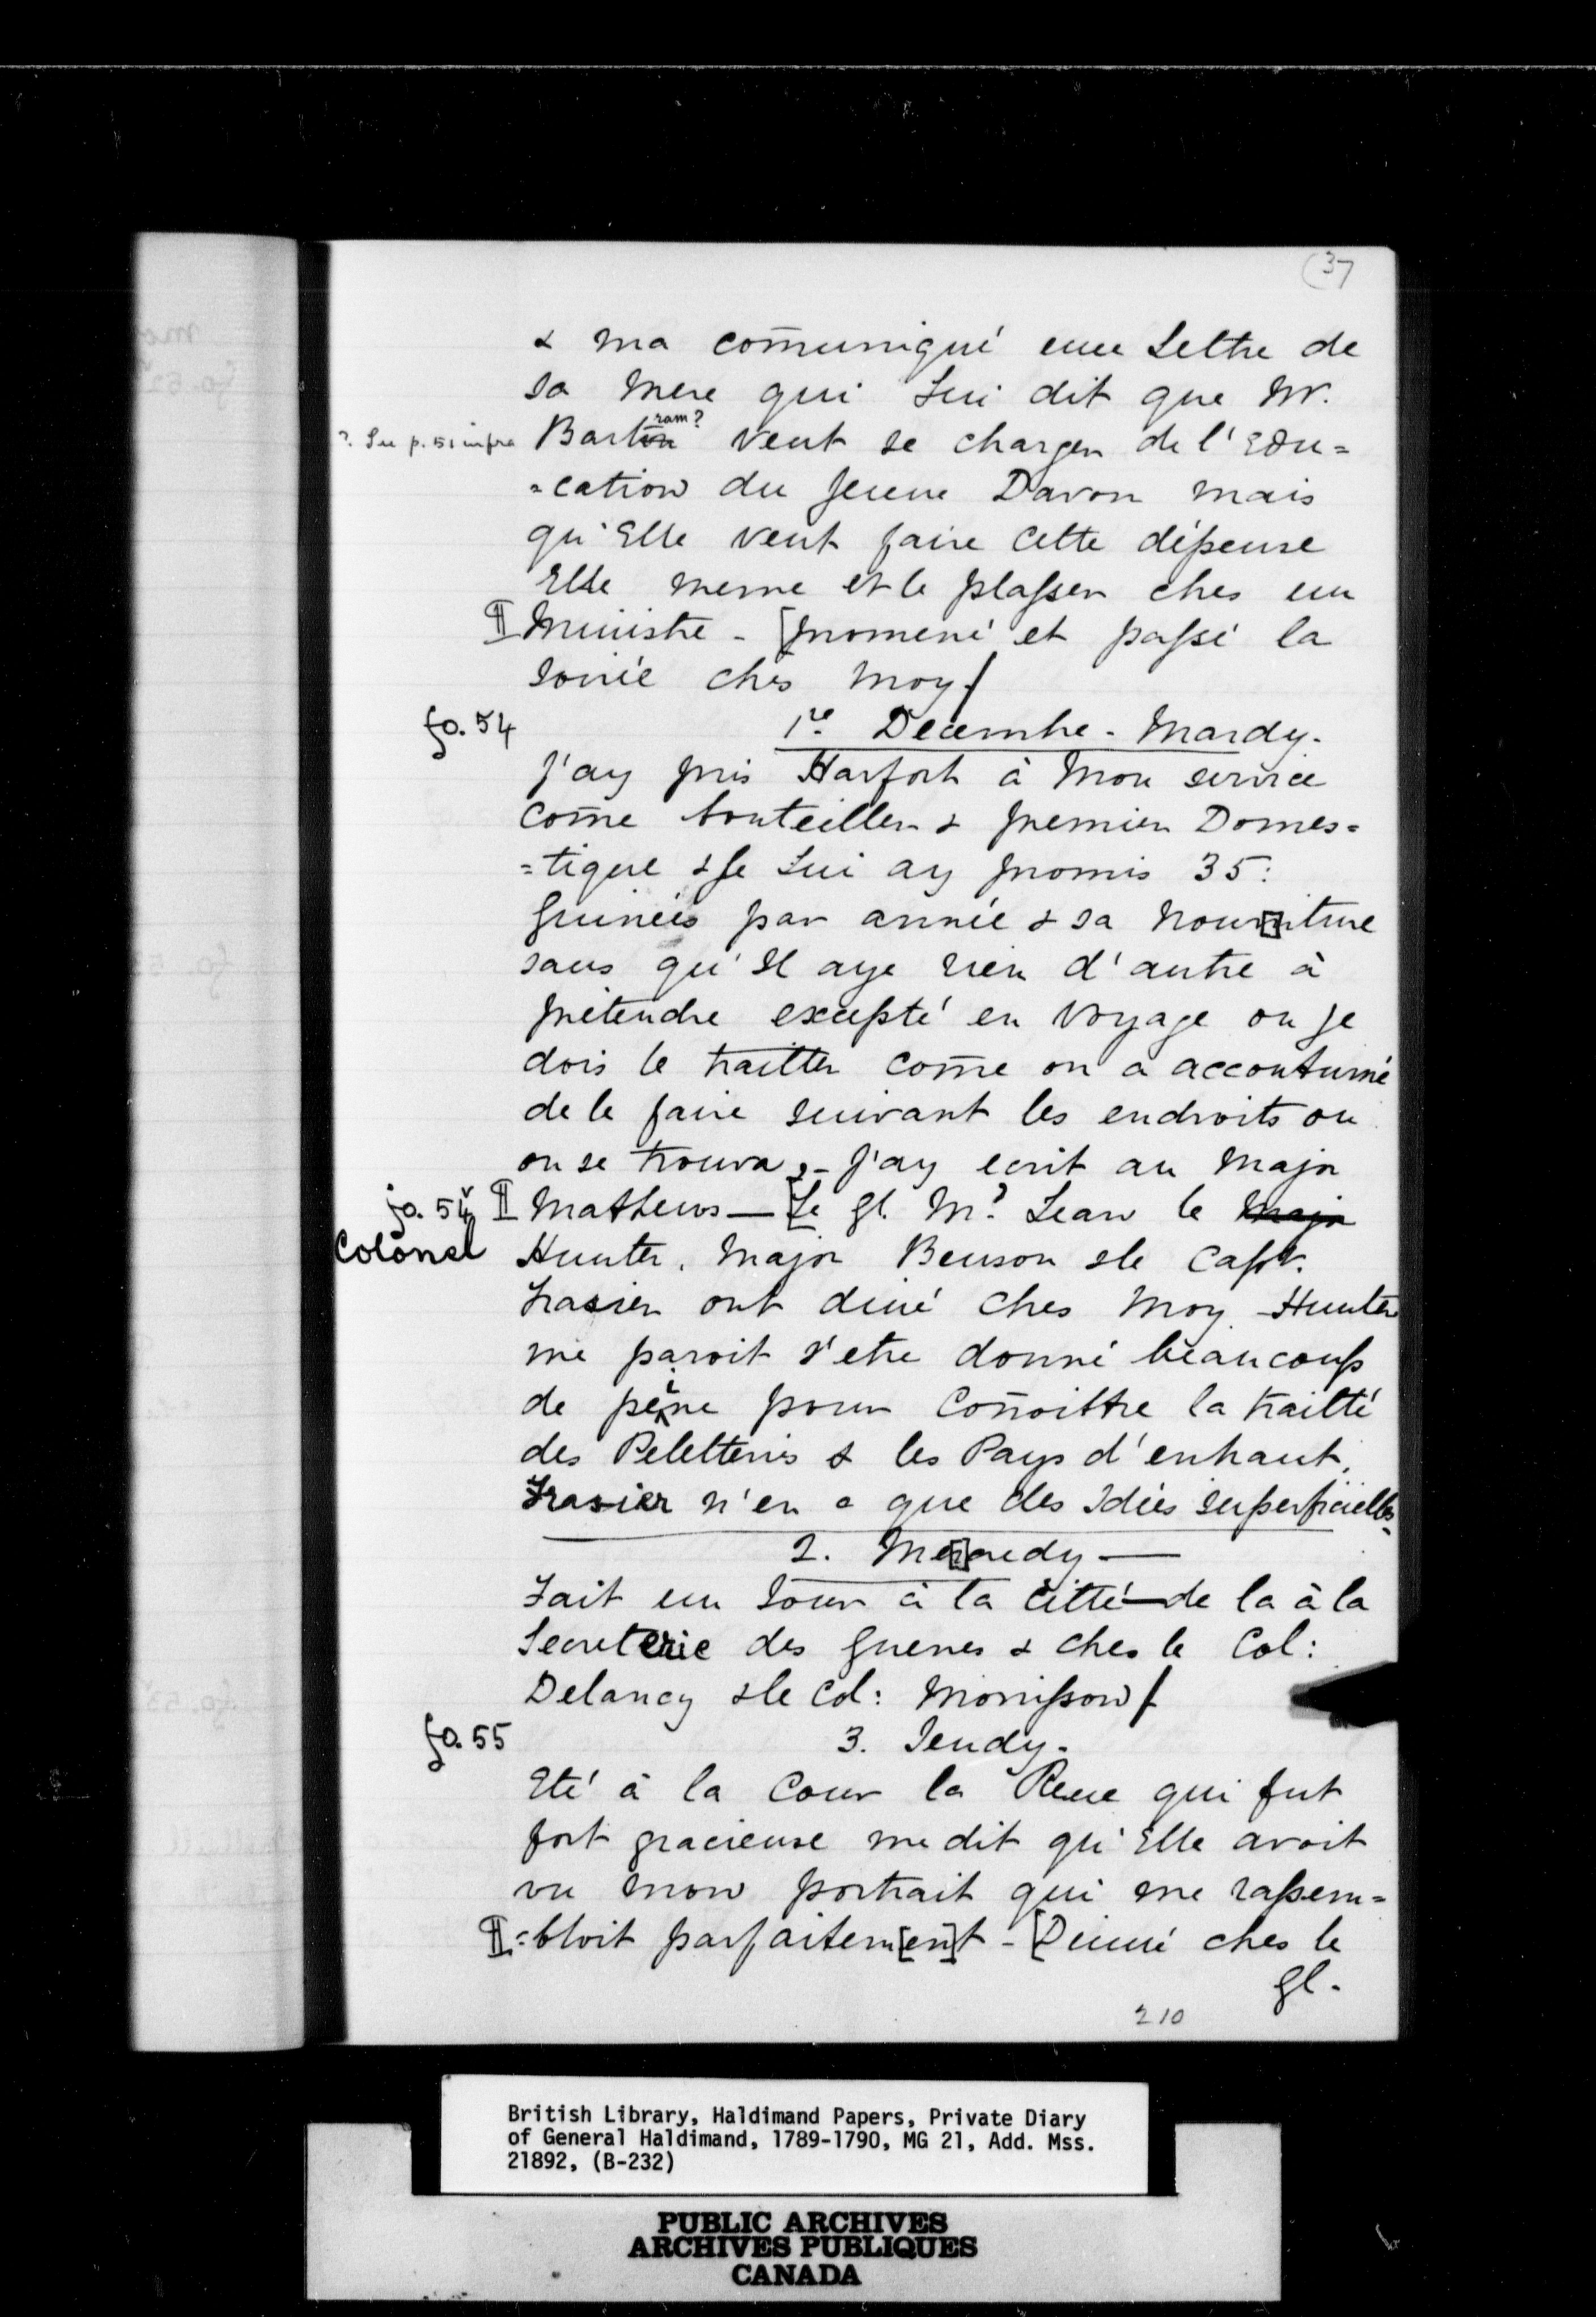 (37
& ma com̄uniqué une Lettre de
sa mere qui Lui dit que Mr.
?. See p. 51 infra Bartin ram? veut se charger de l'Edu=
=cation du Jeune Davon mais
qu'Elle veut faire Cette dépense
Elle meme et le plasser ches un
¶ Ministre - [promené et passé la
soirée ches moy/
fo. 54 1re. Decembre - Mardy.
J'ay pris Harfort à Mon service
Com̄e bouteiller & premier Domes=
=tique & Je Lui ay promis 35:
Guinées par année & sa nour[r]iture
sans qu'Il aye rien d'autre à
prétendre excepté en voyage ou je
dois le traitter com̄e on a accoutumé
de le faire suivant les endroits ou
on se trouva,- J'ay ecrit au Major
fo. 54v ¶ Mathews — [Le gl. Mc. Lean le Major
Colonel Hunter, Major Benson & le Capt.
Frasier ont diné ches Moy. Hunter
me paroit s'etre donné beaucoup
de peine pour Con̄oittre la traitté
des Peletteries & les Pays d'enhaut.
Frasier n'en a que des Idées superficielles.
2. Me[r]credy —
Fait un Tour à la Citté — de la à la
Secreterie des Guerres & ches le Col:
Delancy & le Col: Morrisson/
fo. 55 3. Jeudy.
Eté à la Cour la Reine qui fut
fort gracieuse me dit qu'Elle avoit
vu mon portrait qui me rassem=
¶ =bloit parfaitem[en]t - [Dinné ches le
gl.
210
British Library, Haldimand Papers, Private Diary
of General Haldimand, 1789-1790, MG 21, Add. Mss.
21892, (B-232)
PUBLIC ARCHIVES
ARCHIVES PUBLIQUES
CANADA